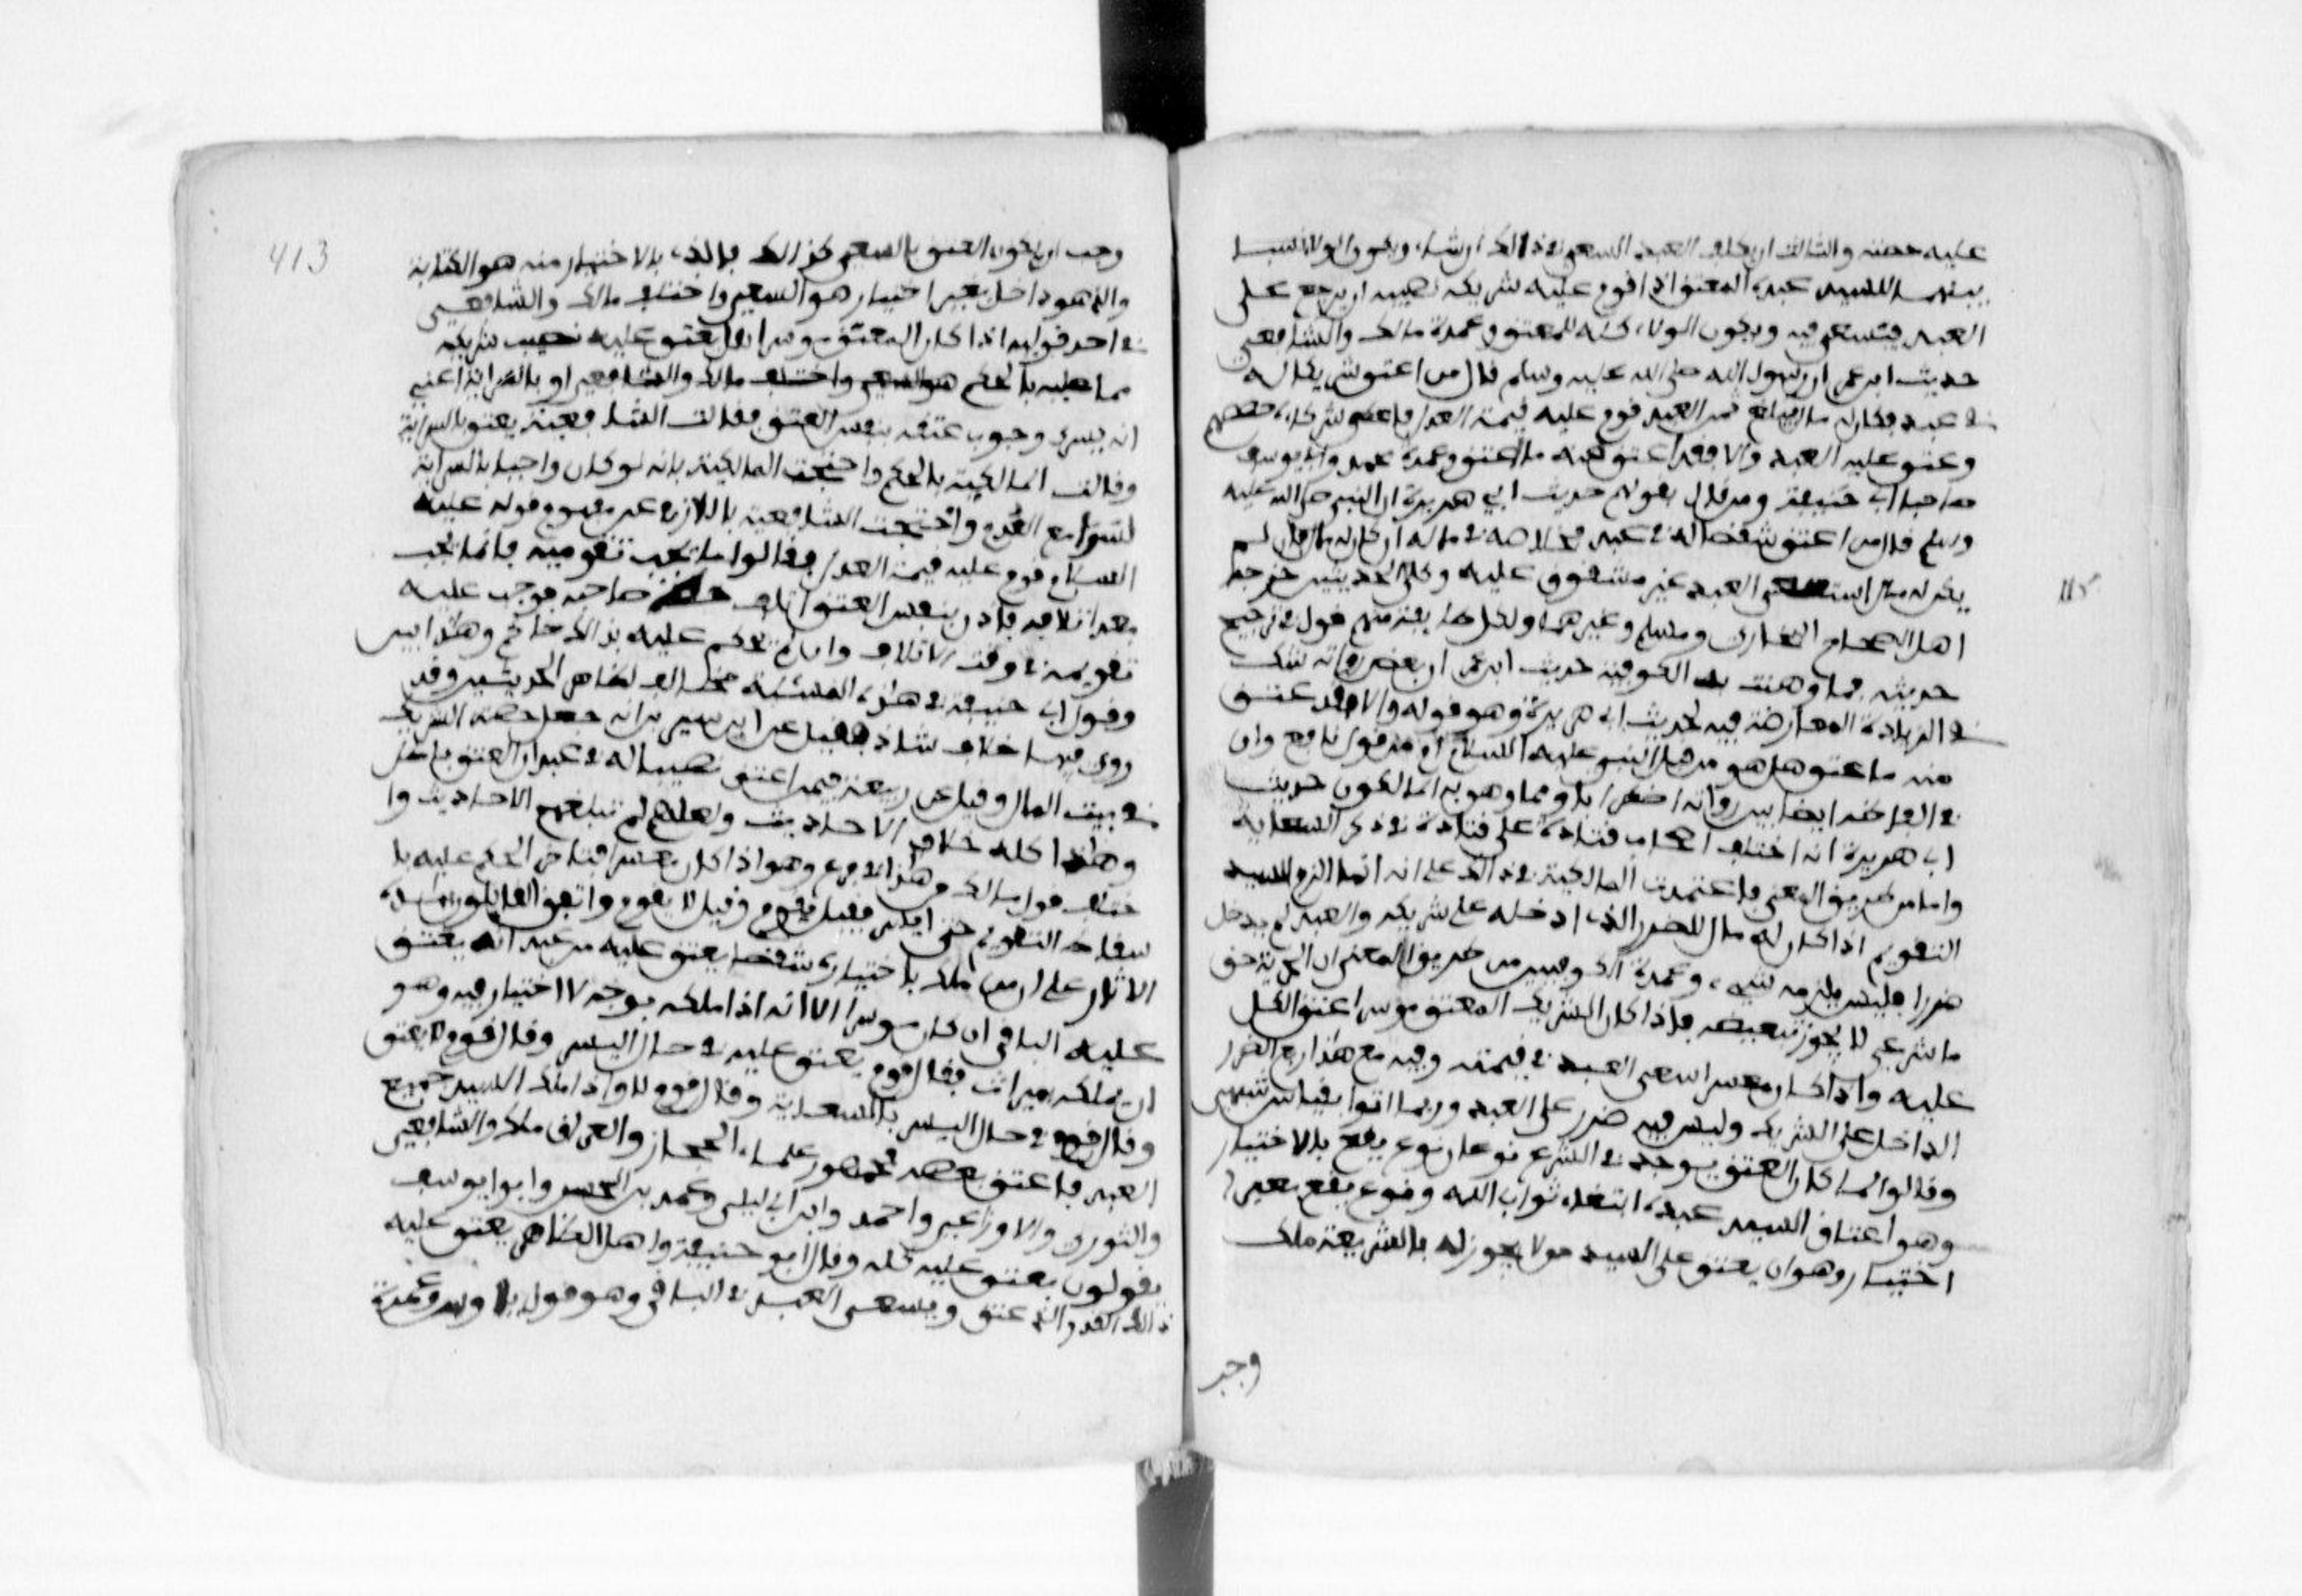 عليه حصته والثالث ان يكلف العبد السعي في ذالك ان شاء ويكون الولا بينهما
بينهما للسيد عبده المعتق اذا قوم عليه شريكه نصيبه ان يرجع على
العبد فيستسعى فيه ويكون الولاء كله للمعتق وعمدة مالك والشافعي
حديث ابن عمر ان رسول الله صلى الله عليه وسلم قال من اعتق شركا له
في عبد فكان له مال يبلغ ثمن العبد قوم عليه قيمة العدل فاعطى شركاءه حصصهم
وعتق عليه العبد والا فقد اعتق منه ما اعتق وعمدة محمد وابي يوسف
صاحبا ابي حنيفة ومن قال بقولهم حديث ابي هريرة ان النبي صلى الله عليه
وسلم قال من اعتق شقصا له في عبد فخلاصه في ماله ان كان له مال فان لم
يكن له مال استسعي العبد غير مشقوق عليه وكلا الحديثين خرجها
115
اهل الصحاح البخاري ومسلم وغيرهما ولكل طايفة منهم قول في ترجيح
حديثه فما وهنت به الكوفية حديث ابن عمر ان بعض رواته شك
في الزيادة المعارضة فيه لحديث ابي هريرة وهو قوله والا فقد عتق
منه ما عتق هل هو من قول النبي عليه السلام او من قول نافع وان
في الفاظه ايضا بين رواته اضطرابا ومما وهن به المالكيون حديث
ابي هريرة انه اختلف اصحاب قتادة على قتادة في ذكر السعاية
واما من طريق المعنى فاعتمدت المالكية في ذالك على انه انما الزم السيد
التقويم اذا كان له مال للضرر الذي ادخله على شريكه والعبد لم يدخل
ضررا فليس يلزمه شيء وعمدة الكوفيين من طريق المعنى ان الحرية حق
ما شرعي لا يجوز تبعيضه فاذا كان الشريك المعتق موسرا عتق الكل
عليه واذا كان معسرا سعى العبد في قيمته وفيه مع هذا رفع الضرر
الداخل على الشريك وليس فيه ضرر على العبد وربما اتوا بقياس شبهي
وقالوا لما كان العتق يوجد في الشرع نوعان نوع يقع بالاختيار
وهو اعتاق السيد عبده ابتغاء ثواب الله ونوع يقع بغير
اختيار وهو ان يعتق على السيد من لا يجوز له بالشريعة ملك
وجب
413
وجب ان يكون العتق بالسعي كذالك فالذي بالاختيار منه هو الكتابة
والذي هو داخل بغير اختيار هو السعي واختلف مالك والشافعي
في احد قوليه اذا كان المعتق موسرا هل يعتق عليه نصيب شريكه
انه يسري وجوب عتقه بنفس العتق فقالت الشافعية يعتق بالسراية
وقالت المالكية بالحكم واحتجت المالكية بانه لو كان واجبا بالسراية
لسرى مع العدم واحتجت الشافعية باللازم عن مفهوم قوله عليه
السلام قوم عليه قيمة العدل فقالوا ما يجب تقويمه فانما يجب
بعد اتلافه فاذن بنفس العتق اتلف حظ صاحبه فوجب عليه
تقويمه في وقت الاتلاف وان لم يحكم عليه بذالك حاكم وهذا بين
وقول ابي حنيفة في هذه المسئلة مخالف لظاهر الحديثين وقد
روي فيها خلاف شاذ فقيل عن ابن سيرين انه جعل حصة الشريك
في بيت المال وقيل عن ربيعة فيمن اعتق نصيبا له في عبد ان العتق باطل
وهذا كله خلاف الاحاديث ولعلهم لم تبلغهم الاحاديث وا
ختلف قول مالك من هذا في فرع وهو اذا كان معسرا فتاخر الحكم عليه با
سقاط التقويم حتى ايسر فقيل يقوم وقيل لا يقوم واتفق القائلون بهذه
الاثار على ان من ملك باختياره شقصا يعتق عليه من عبد انه يعتق
عليه الباقي ان كان موسرا الا انه اذا ملكه بوجه لا اختيار فيه وهو
ان يملكه بميراث فقال قوم يعتق عليه في حال اليسر وقال قوم لا يعتق
وقال قوم في حال اليسر بالسعاية وقال قوم لا واذا ملك السيد جميع
العبد فاعتق بعضه فجمهور علماء الحجاز والعراق مالك والشافعي
والثوري والاوزاعي واحمد وابن ابي ليلى ومحمد بن الحسن وابو يوسف
يقولون يعتق عليه كله وقال ابو حنيفة واهل الظاهر يعتق عليه
ذالك القدر الذي عتق ويسعى العبد في الباقي وهو قول طاوس وعمدة